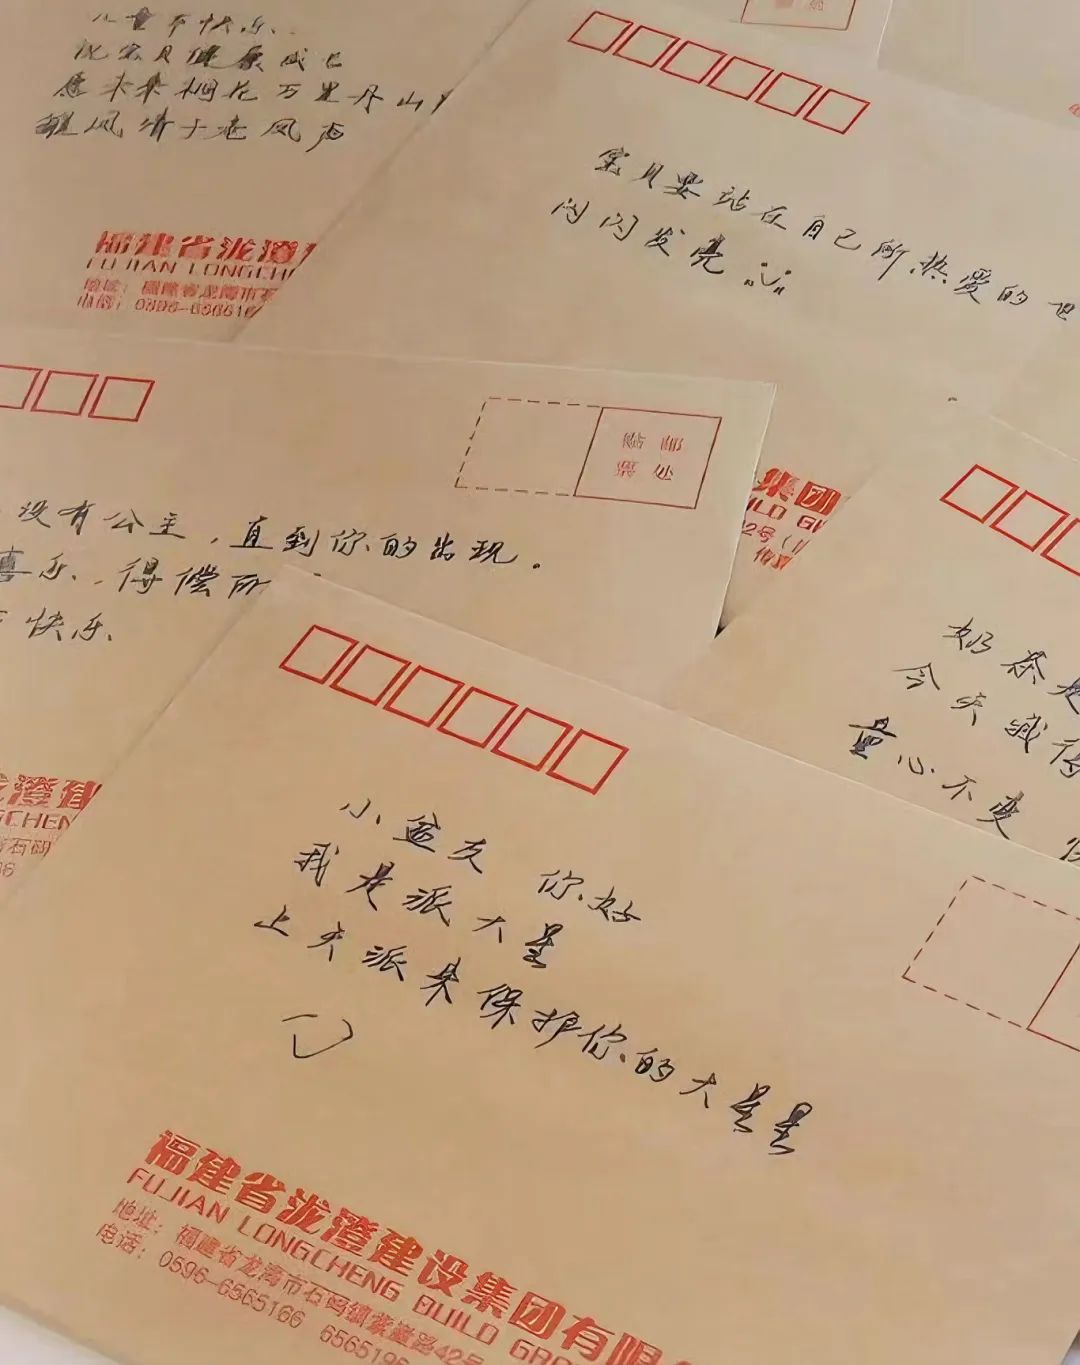 儿童节快乐
祝宝贝健康成长
愿未来桐花万里丹山
雏凤清于老凤声
福建省泷澄
FUJIAN LONGCH
地址：福建省龙海市石
电话：0596-6565166
宝贝要站在自己所热爱的世
闪闪发亮
没有公主，直到你的出现。
喜乐，得偿所
快乐
贴邮
票处
集团
ILD G
2号
传真
奶茶是
今天我得
童心不变 快
小盆友 你好
我是派大星
上天派来保护你的大星星
泷澄建
GCHEN
福建省泷澄建设集团有限
FUJIAN LONGCHENG BUILD GRO
地址：福建省龙海市石码镇紫崴路42号
电话：0596-6565166 6565196